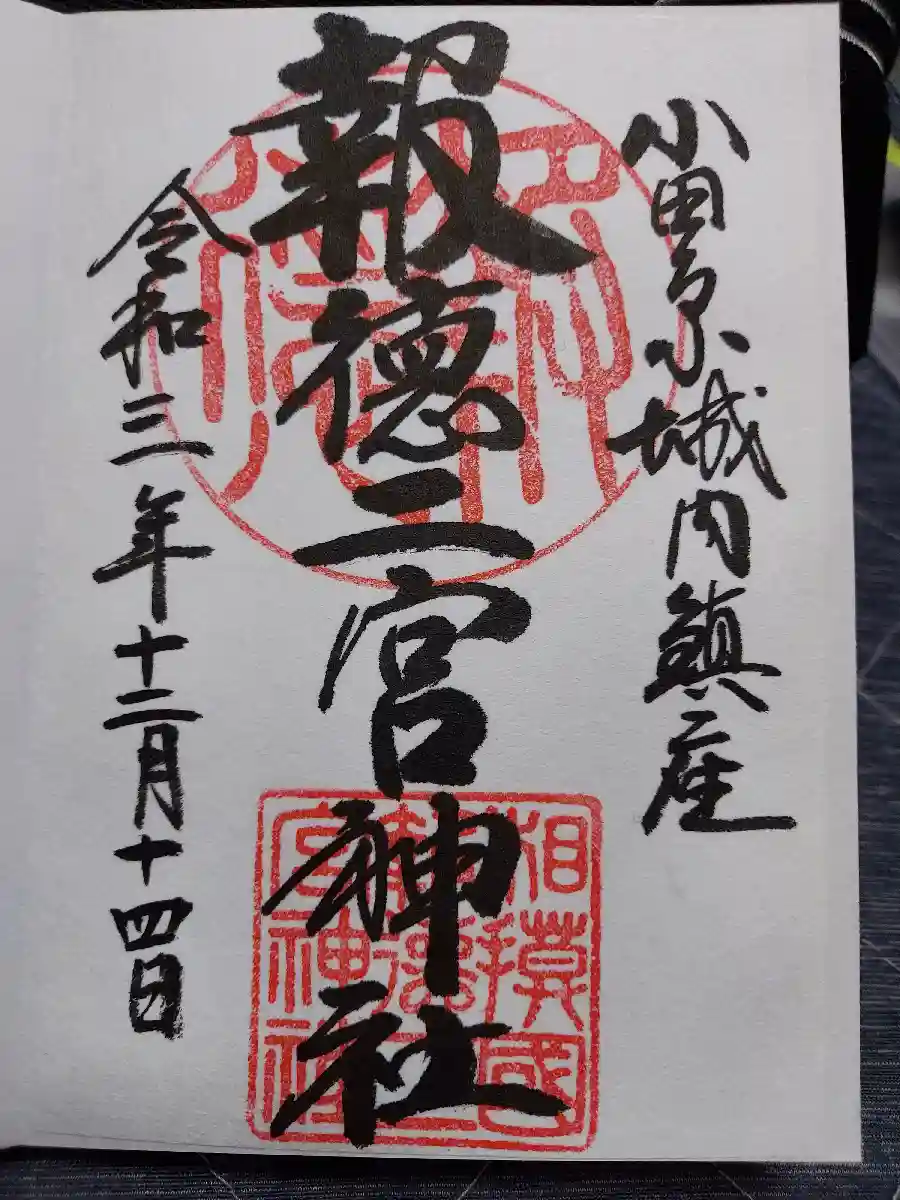 小田原城内鎮座
報徳二宮神社
令和三年十二月十四日
相模國
報徳二
宮神社